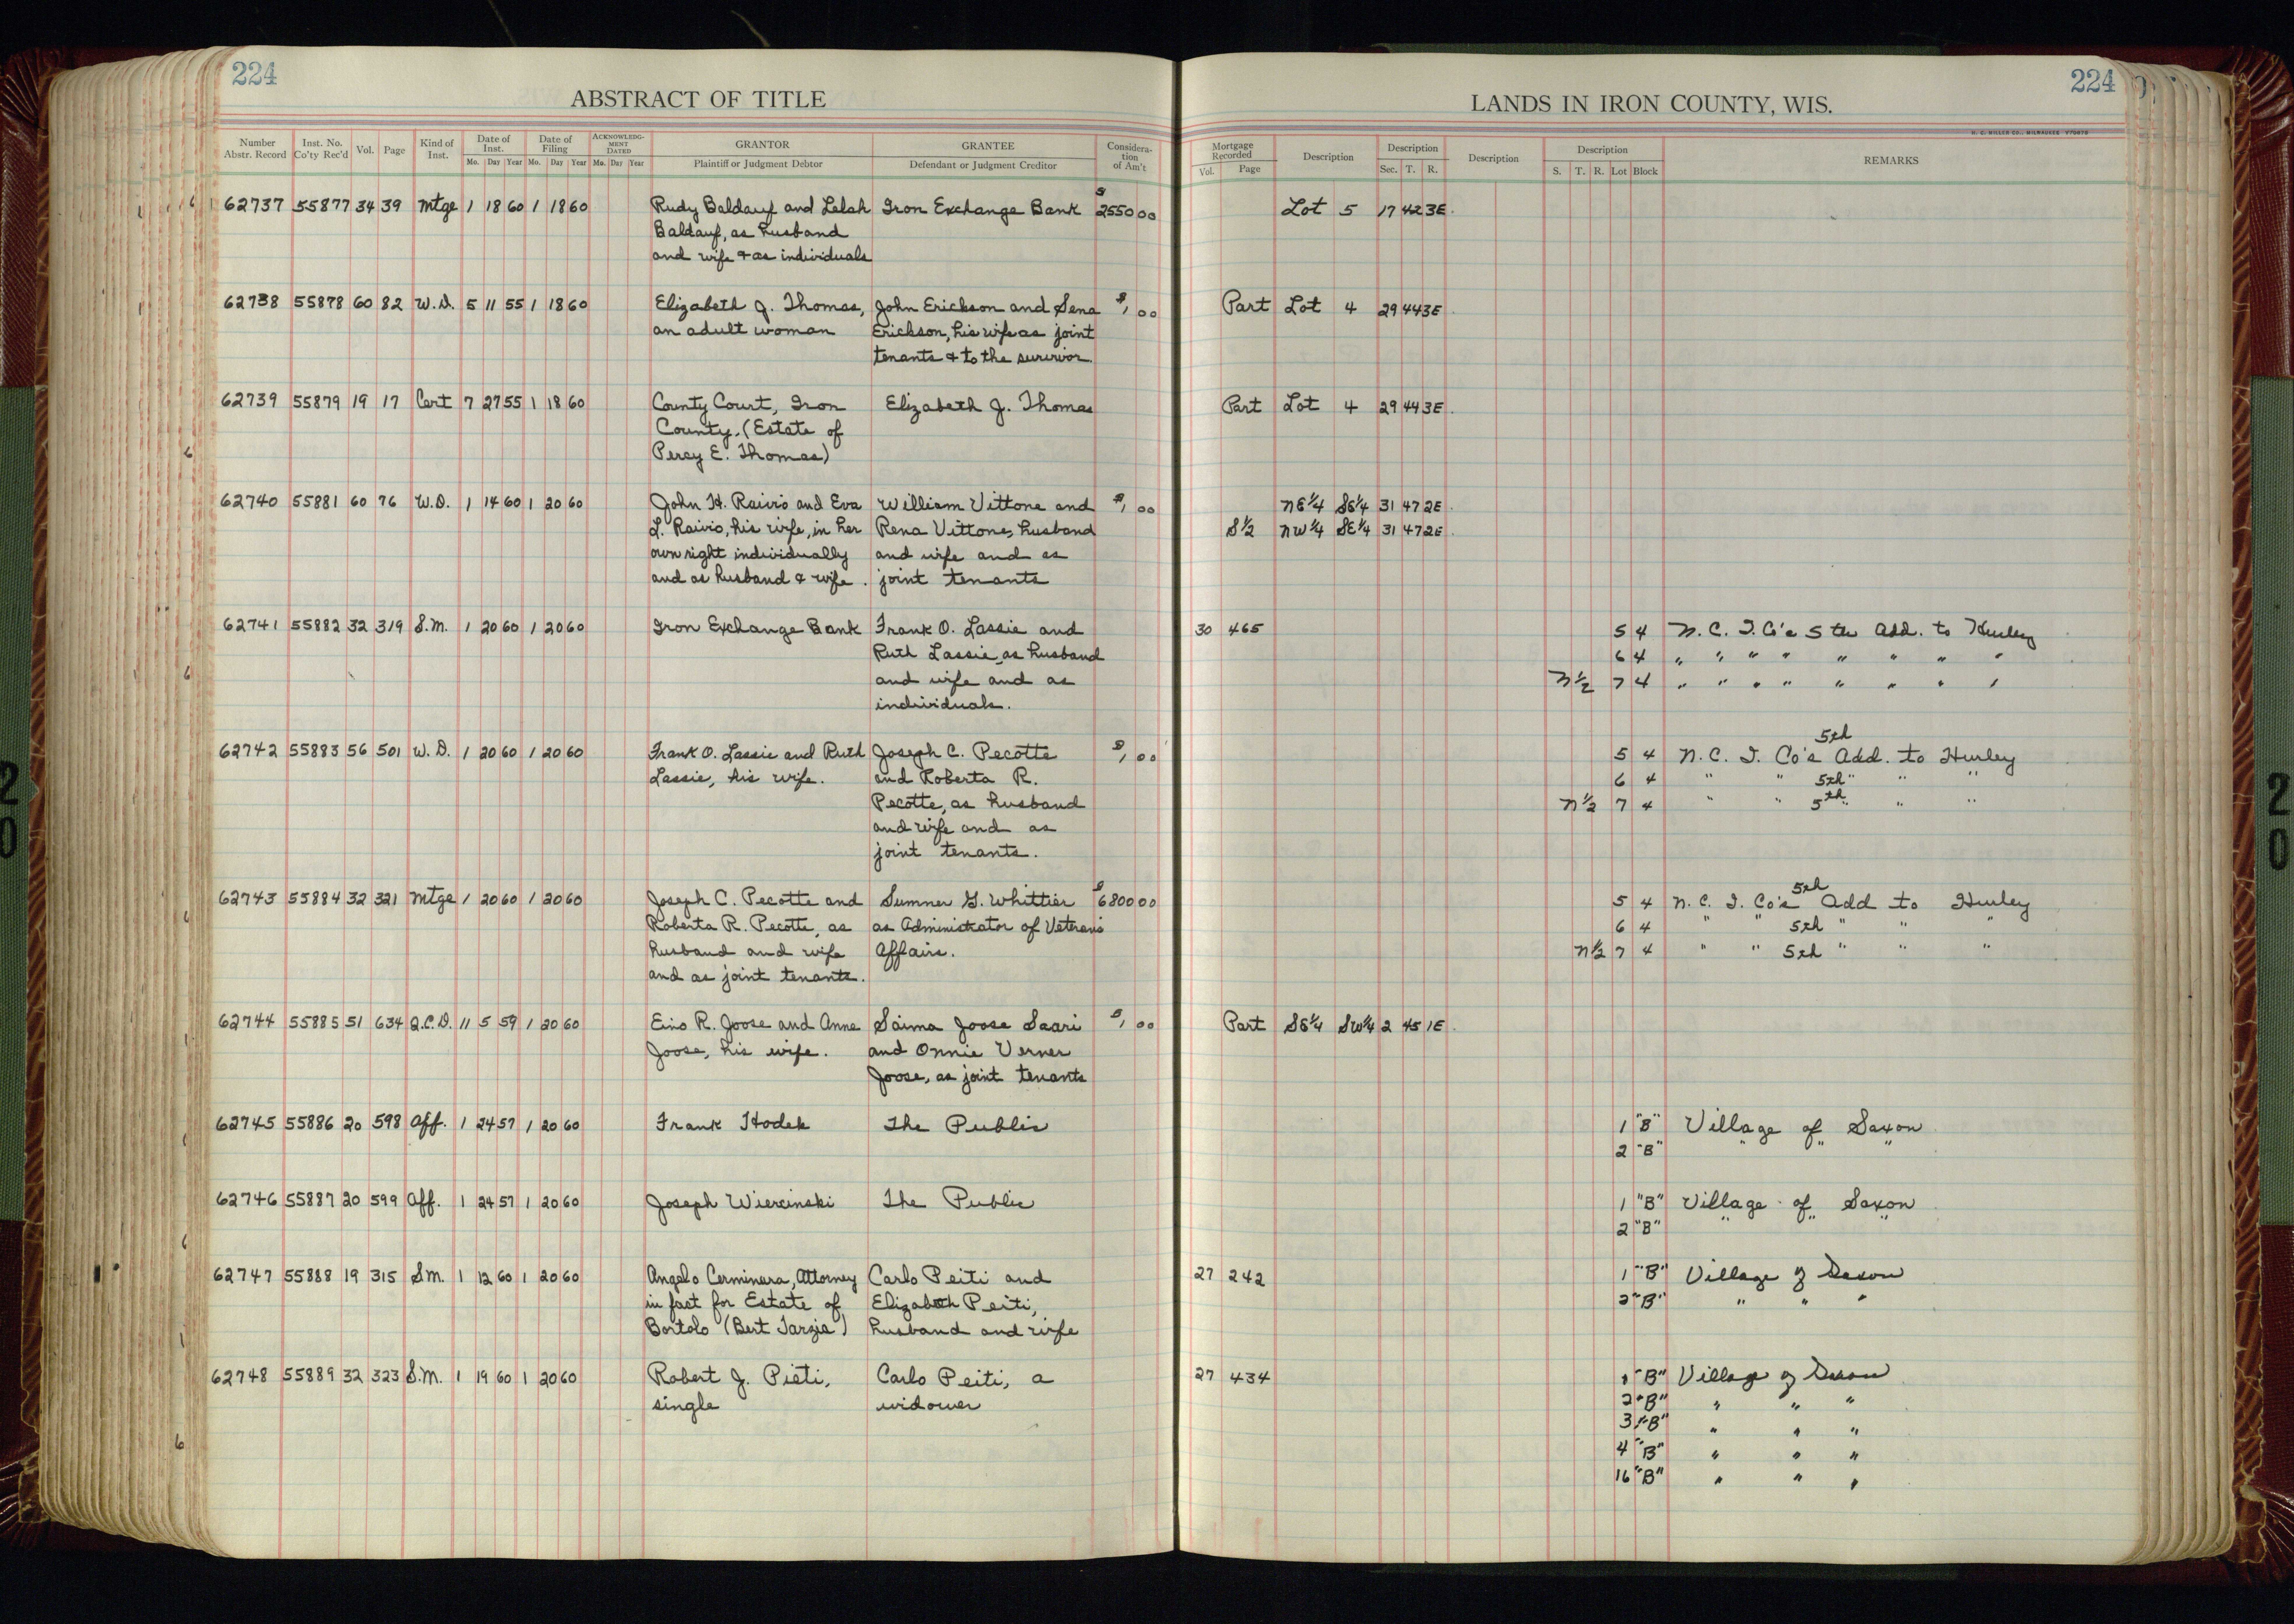 224
ABSTRACT OF TITLE
Number Abstr. Record | Inst. No. Co'ty Rec'd | Vol. | Page | Kind of Inst. | Date of Inst. Mo. Day Year | Date of Filing Mo. Day Year | ACKNOWLEDGMENT DATED Mo. Day Year | GRANTOR Plaintiff or Judgment Debtor | GRANTEE Defendant or Judgment Creditor | Consideration of Am't
62737 55877 34 39 Mtge 1 18 60 1 18 60 Rudy Baldauf and Lelah Iron Exchange Bank $2550 00
Baldauf, as husband
and wife & as individuals
62738 55878 60 82 W.D. 5 11 55 1 18 60 Elizabeth J. Thomas, John Erickson and Sena $1 00
an adult woman Erickson, his wife as joint
tenants & to the survivor.
62739 55879 19 17 Cert 7 27 55 1 18 60 County Court, Iron Elizabeth J. Thomas
County. (Estate of
Percy E. Thomas)
62740 55881 60 76 W.D. 1 14 60 1 20 60 John H. Raivio and Eva William Vittone and $1 00
L. Raivio, his wife, in her Rena Vittone, husband
own right individually and wife and as
and as husband & wife. joint tenants
62741 55882 32 319 S.M. 1 20 60 1 20 60 Iron Exchange Bank Frank O. Lassie and
Ruth Lassie, as husband
and wife and as
individuals.
62742 55883 56 501 W.D. 1 20 60 1 20 60 Frank O. Lassie and Ruth Joseph C. Pecotte $1 00
Lassie, his wife. and Roberta R.
Pecotte, as husband
and wife and as
joint tenants.
62743 55884 32 321 Mtge 1 20 60 1 20 60 Joseph C. Pecotte and Sumner G. Whittier $6800 00
Roberta R. Pecotte, as as Administrator of Veterans
husband and wife Affairs.
and as joint tenants.
62744 55885 51 634 Q.C.D. 11 5 59 1 20 60 Eino R. Joose and Anne Saima Joose Saari $1 00
Joose, his wife. and Onnie Verner
Joose, as joint tenants
62745 55886 20 598 Aff. 1 24 57 1 20 60 Frank Hodek The Public
62746 55887 20 599 Aff. 1 24 57 1 20 60 Joseph Wiercinski The Public
62747 55888 19 315 S.M. 1 12 60 1 20 60 Angelo Cerminara, Attorney Carlo Peiti and
in fact for Estate of Elizabeth Peiti,
Bortolo (Bert Tarzia) husband and wife
62748 55889 32 323 S.M. 1 19 60 1 20 60 Robert J. Pieti, Carlo Peiti, a
single widower
224
LANDS IN IRON COUNTY, WIS.
H. C. MILLER CO., MILWAUKEE
Mortgage Recorded Vol. Page | Description | Description Sec. T. R. | Description | Description S. T. R. Lot Block | REMARKS
Lot 5 17 42 3E.
Part Lot 4 29 44 3E.
Part Lot 4 29 44 3E.
NE 1/4 SE 1/4 31 47 2E.
S 1/2 NW 1/4 SE 1/4 31 47 2E.
30 465 5 4 N. C. I. Co's 5th Add. to Hurley
6 4 " " " " " " " "
N 1/2 7 4 " " " " " " " "
5th
5 4 N. C. I. Co's Add. to Hurley
6 4 " " 5th " " "
N 1/2 7 4 " " 5th " " "
5th
5 4 N. C. I. Co's Add to Hurley
6 4 " " 5th " " "
N 1/2 7 4 " " 5th " " "
Part SE 1/4 SW 1/4 2 45 1E.
1 "B" Village of Saxon
2 "B" " " "
1 "B" Village of Saxon
2 "B" " " "
27 242 1 "B" Village of Saxon
2 "B" " " "
27 434 1 "B" Village of Saxon
2 "B" " " "
3 "B" " " "
4 "B" " " "
16 "B" " " "
20
20